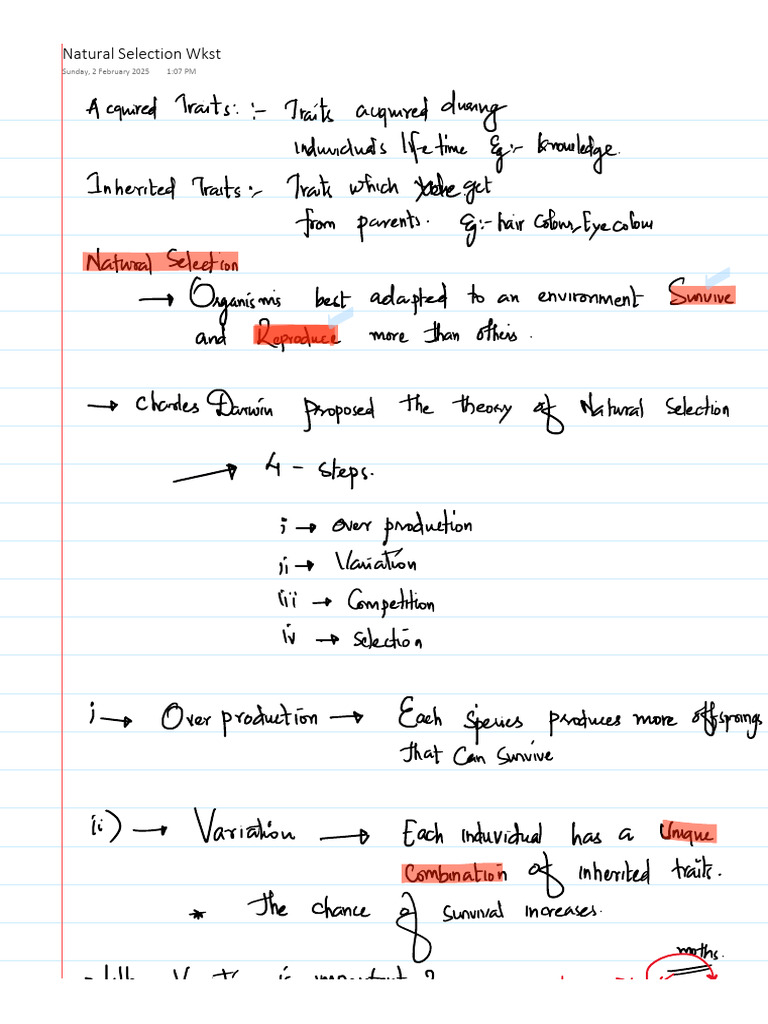 Natural Selection Wkst
Sunday, 2 February 2025 1:07 PM
Acquired Traits: :- Traits acquired during
individuals life time Eg:- knowledge.
Inherited Traits:- Traits which get
from parents. Eg:- hair colour, Eye colour
Natural Selection
→ Organisms best adapted to an environment Survive
and Reproduce more than others.
→ Charles Darwin proposed the theory of Natural Selection
→ 4 - Steps.
i → over production
ii → Variation
iii → Competition
iv → selection
i → Over production → Each Species produces more offsprings
that can survive
ii) → Variation → Each induvidual has a Unique
Combination of inherited traits.
* The chance of survival increases.
moths.